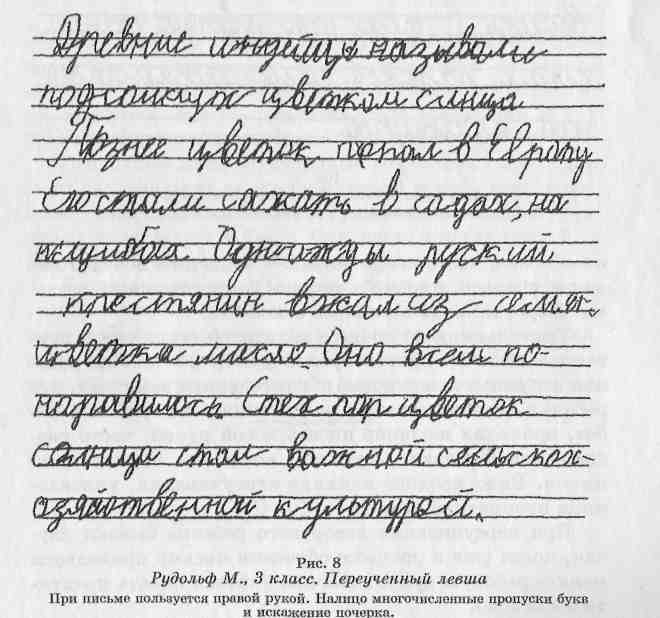 Древние индейцы называли
подсонцух цветком сонца
Познее цветок попал в Европу
Его стали сажать в садах, на
Одножды руский
крестянин вжал из семян
цветка масло. Оно всем по-
наравилось. Стех пор цветок
сонца стал важной сельскох-
озяйственной культурой.
Рис. 8
Рудольф М., 3 класс. Переученный левша
При письме пользуется правой рукой. Налицо многочисленные пропуски букв
и искажение почерка.